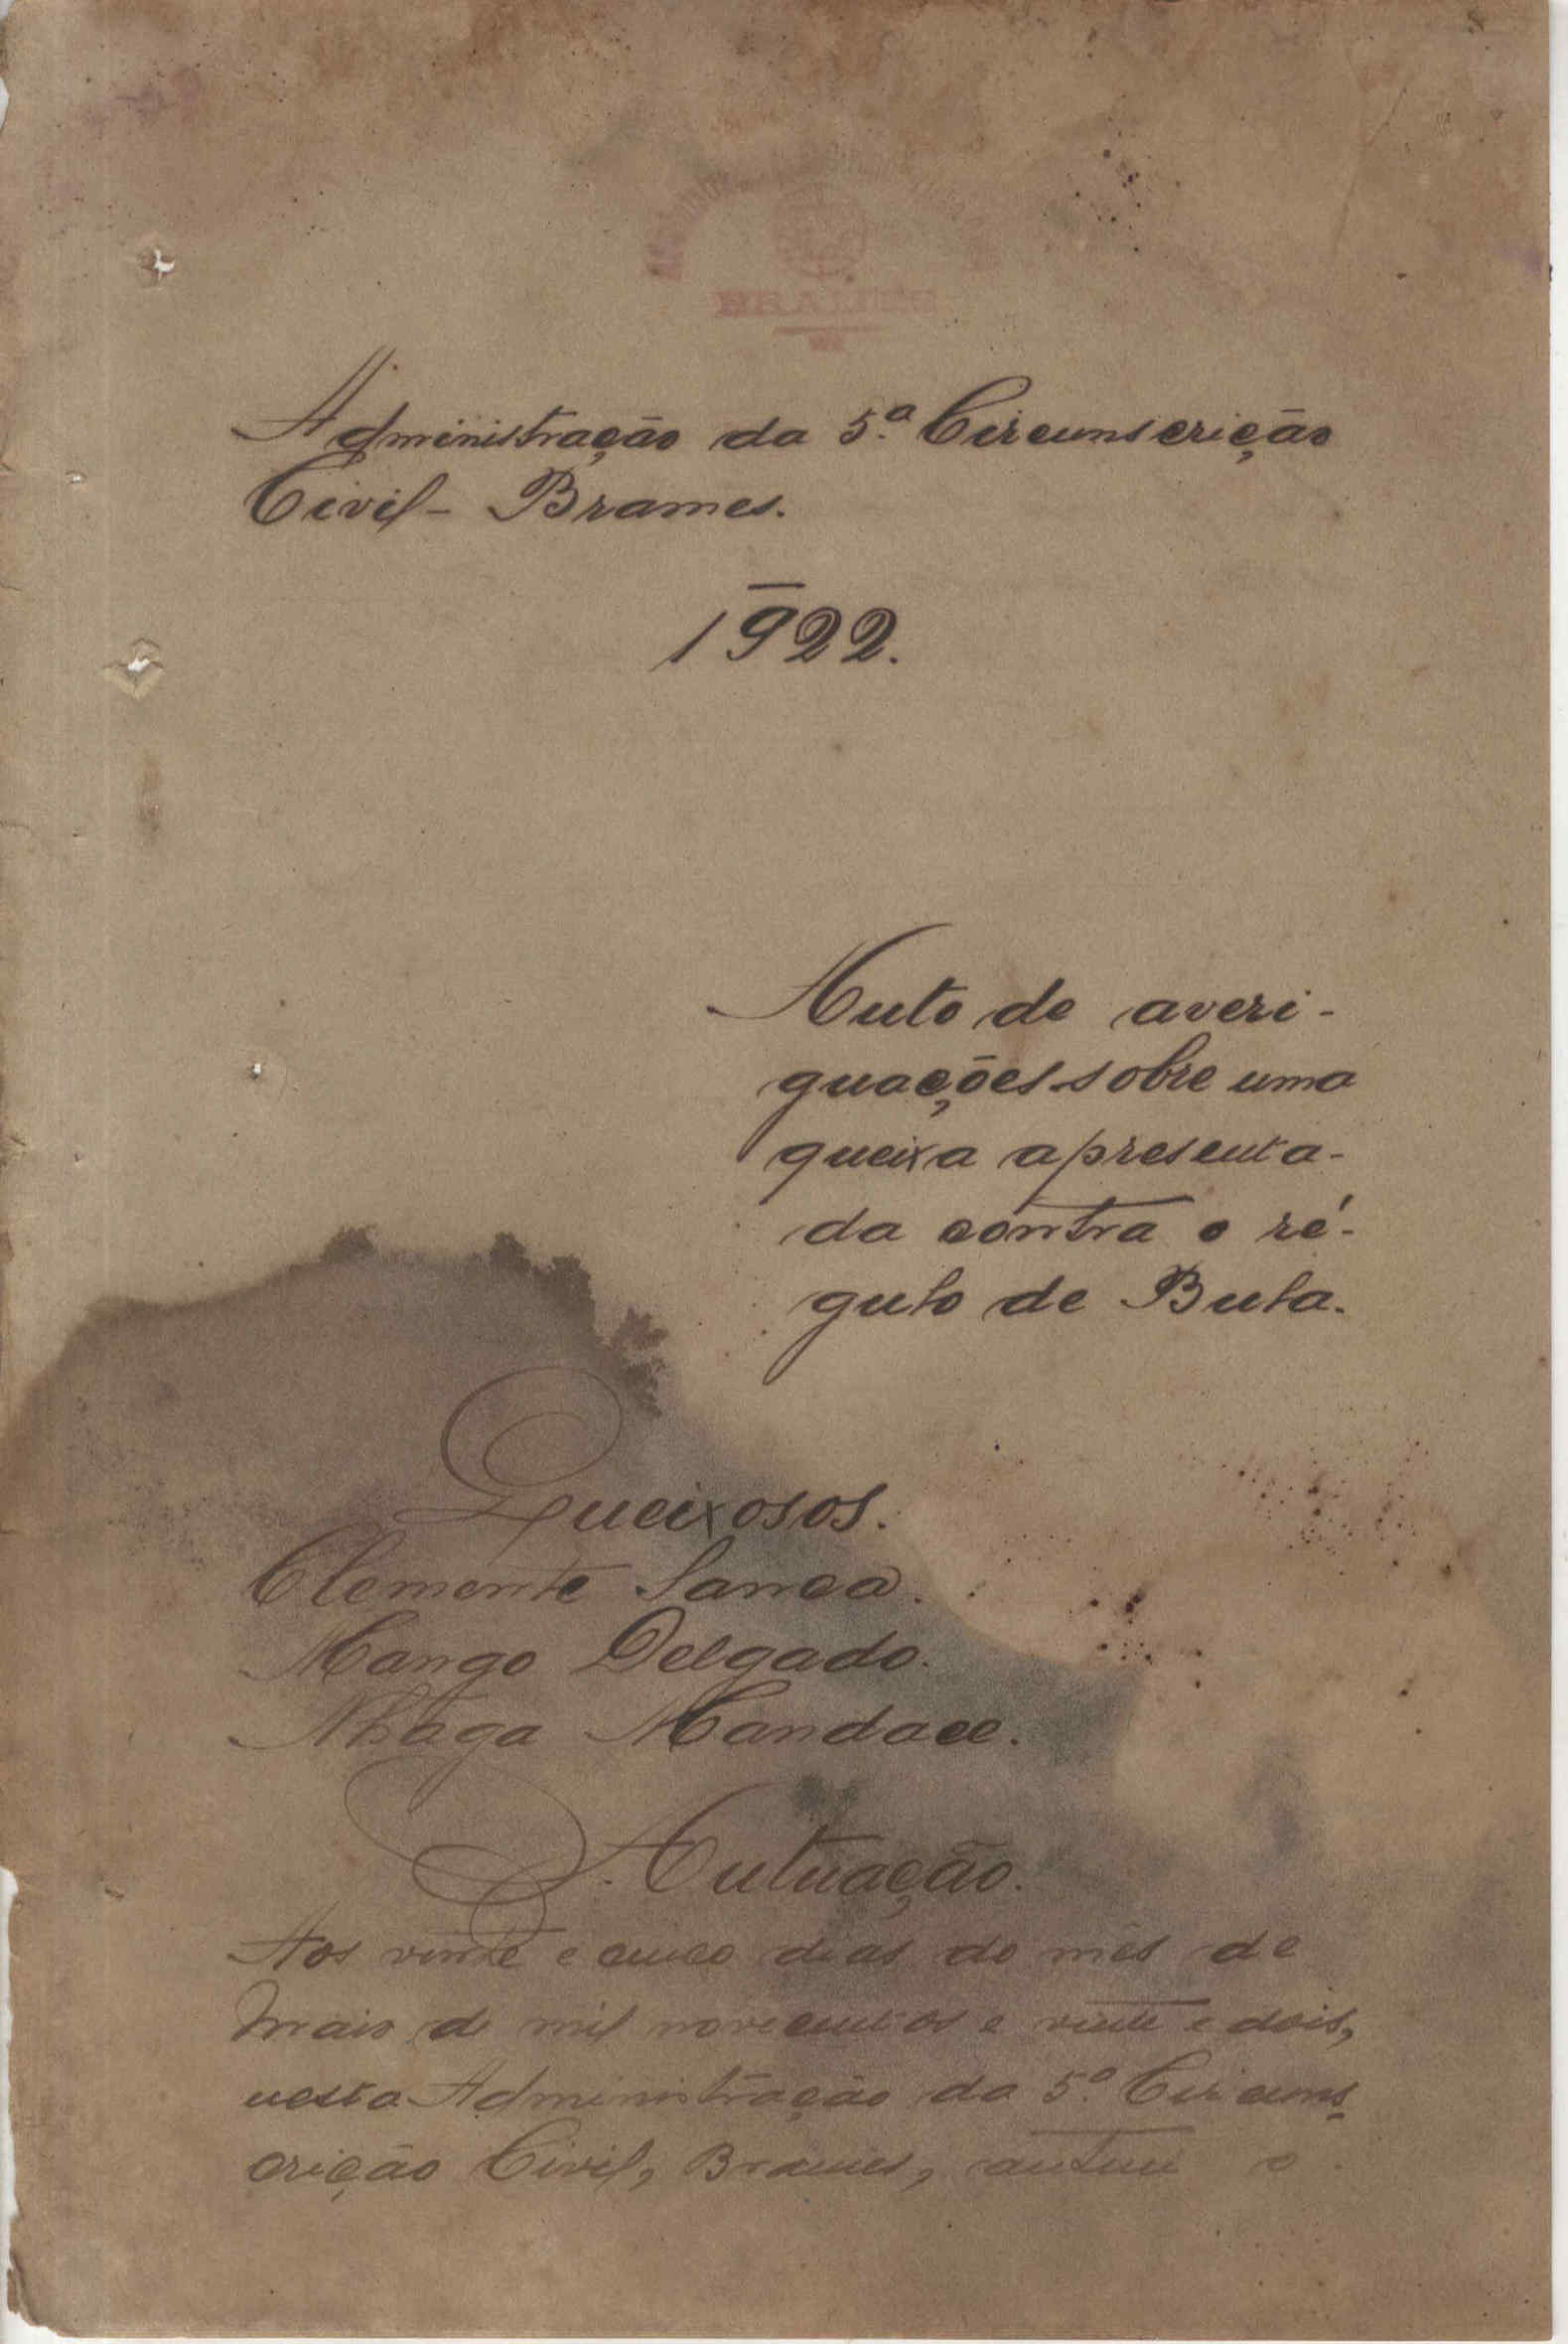 BRAMES
Administração da 5.ª Circunscrição
Civil - Brames.
1922.
Auto de averi-
guações sobre uma
queixa apresenta-
da contra o ré-
gulo de Bula.
Queixosos.
Clemente Sanca.
Mango Delgado.
Nhaga Mandace.
Autuação.
Aos vinte e cinco dias do mês de
Maio de mil novecentos e vinte e dois,
nesta Administração da 5.ª Circuns-
crição Civil, Brames, autuei o